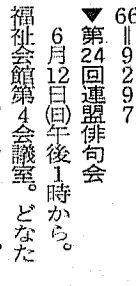 66＝9297
▼第24回連盟俳句会
6月12日㈰午後1時から。
福祉会館第4会議室。どなた